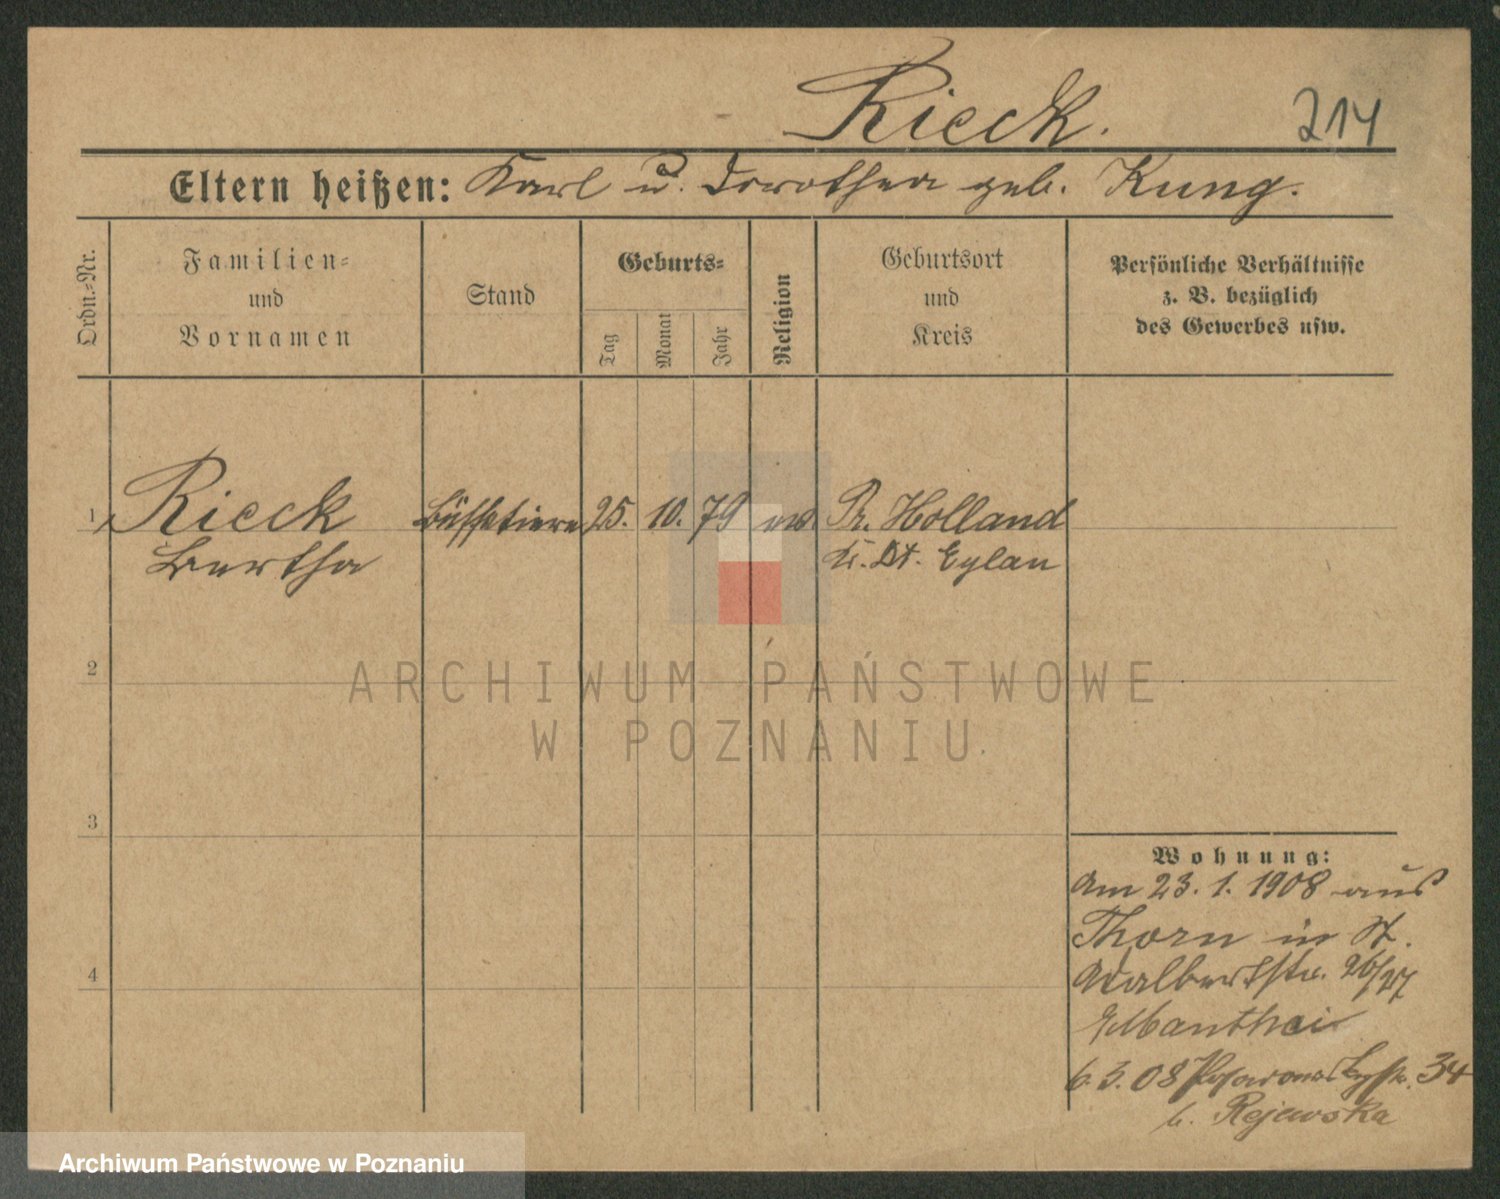 Rieck.
214
Eltern heißen: Karl u. Dorothea geb. Kung.
Ordn.-Nr.
Familien-
und
Vornamen
Stand
Geburts-
Tag
Monat
Jahr
Religion
Geburtsort
und
Kreis
Persönliche Verhältnisse
z. B. bezüglich
des Gewerbes usw.
1 Rieck Büffetiere 25. 10. 79 ev. Pr. Holland
Bertha Kr. Dt. Eylau
2
3
4
Wohnung:
Am 23. 1. 1908 aus
Thorn in St.
Adalbertstr. 26/27
Manthei
6. 3. 08 34
b. Rejewska
ARCHIWUM PAŃSTWOWE
W POZNANIU
Archiwum Państwowe w Poznaniu